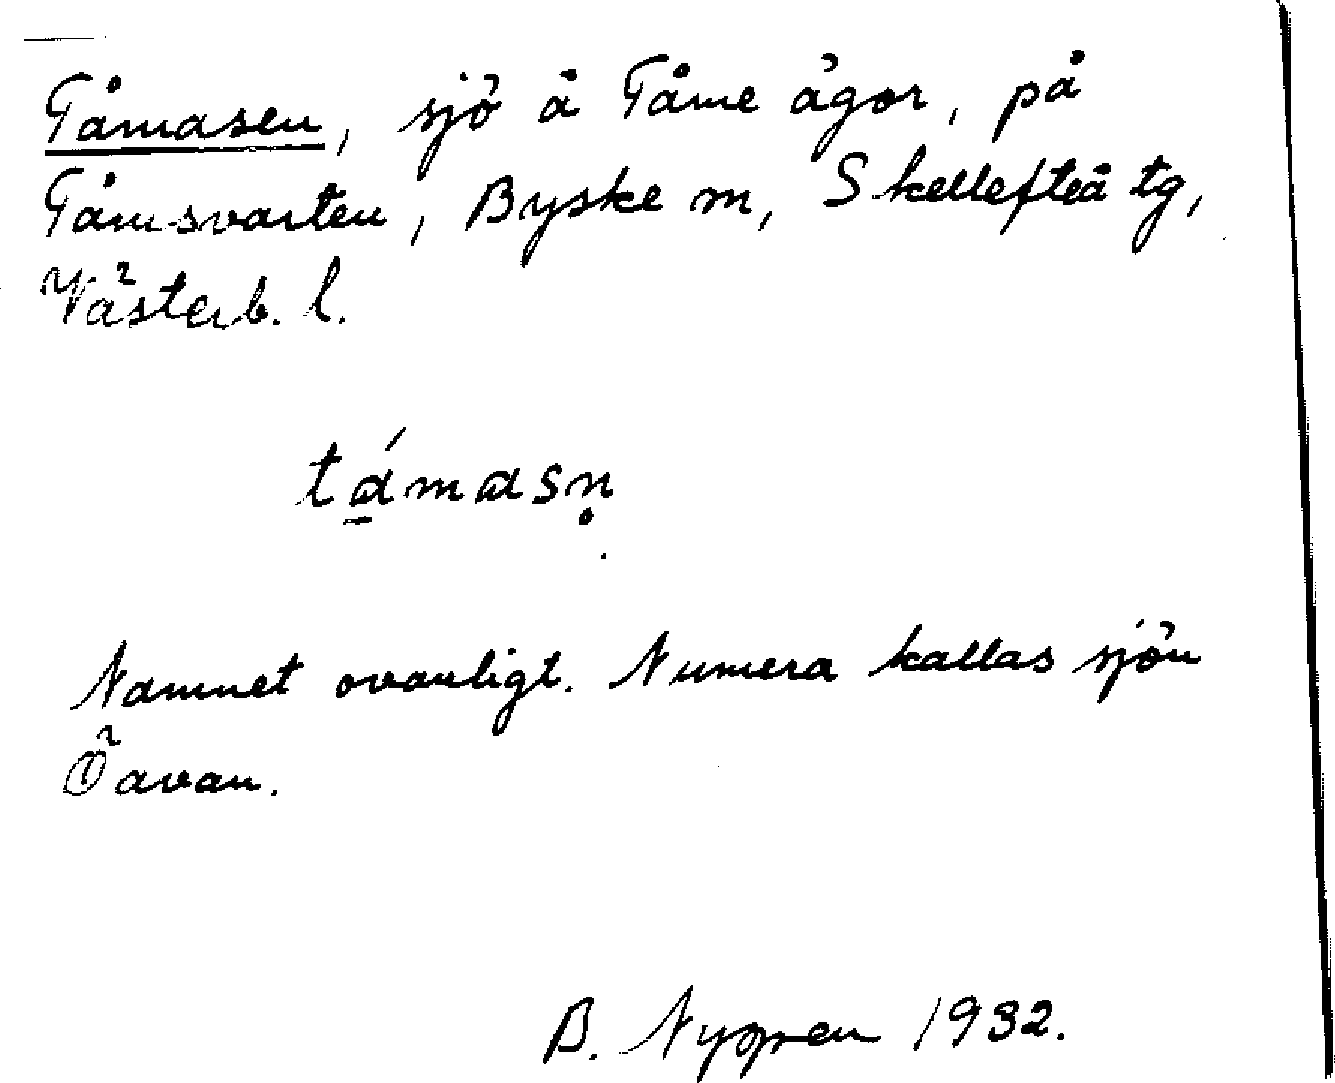 Tåmasen, sjö å Tåme ägor, på
Tåmsvarten, Byske sn, Skellefteå tg,
Västerb. l.
tá̱masn̥
Namnet ovanligt. Numera kallas sjön
Öavan.
B. Nygren 1932.